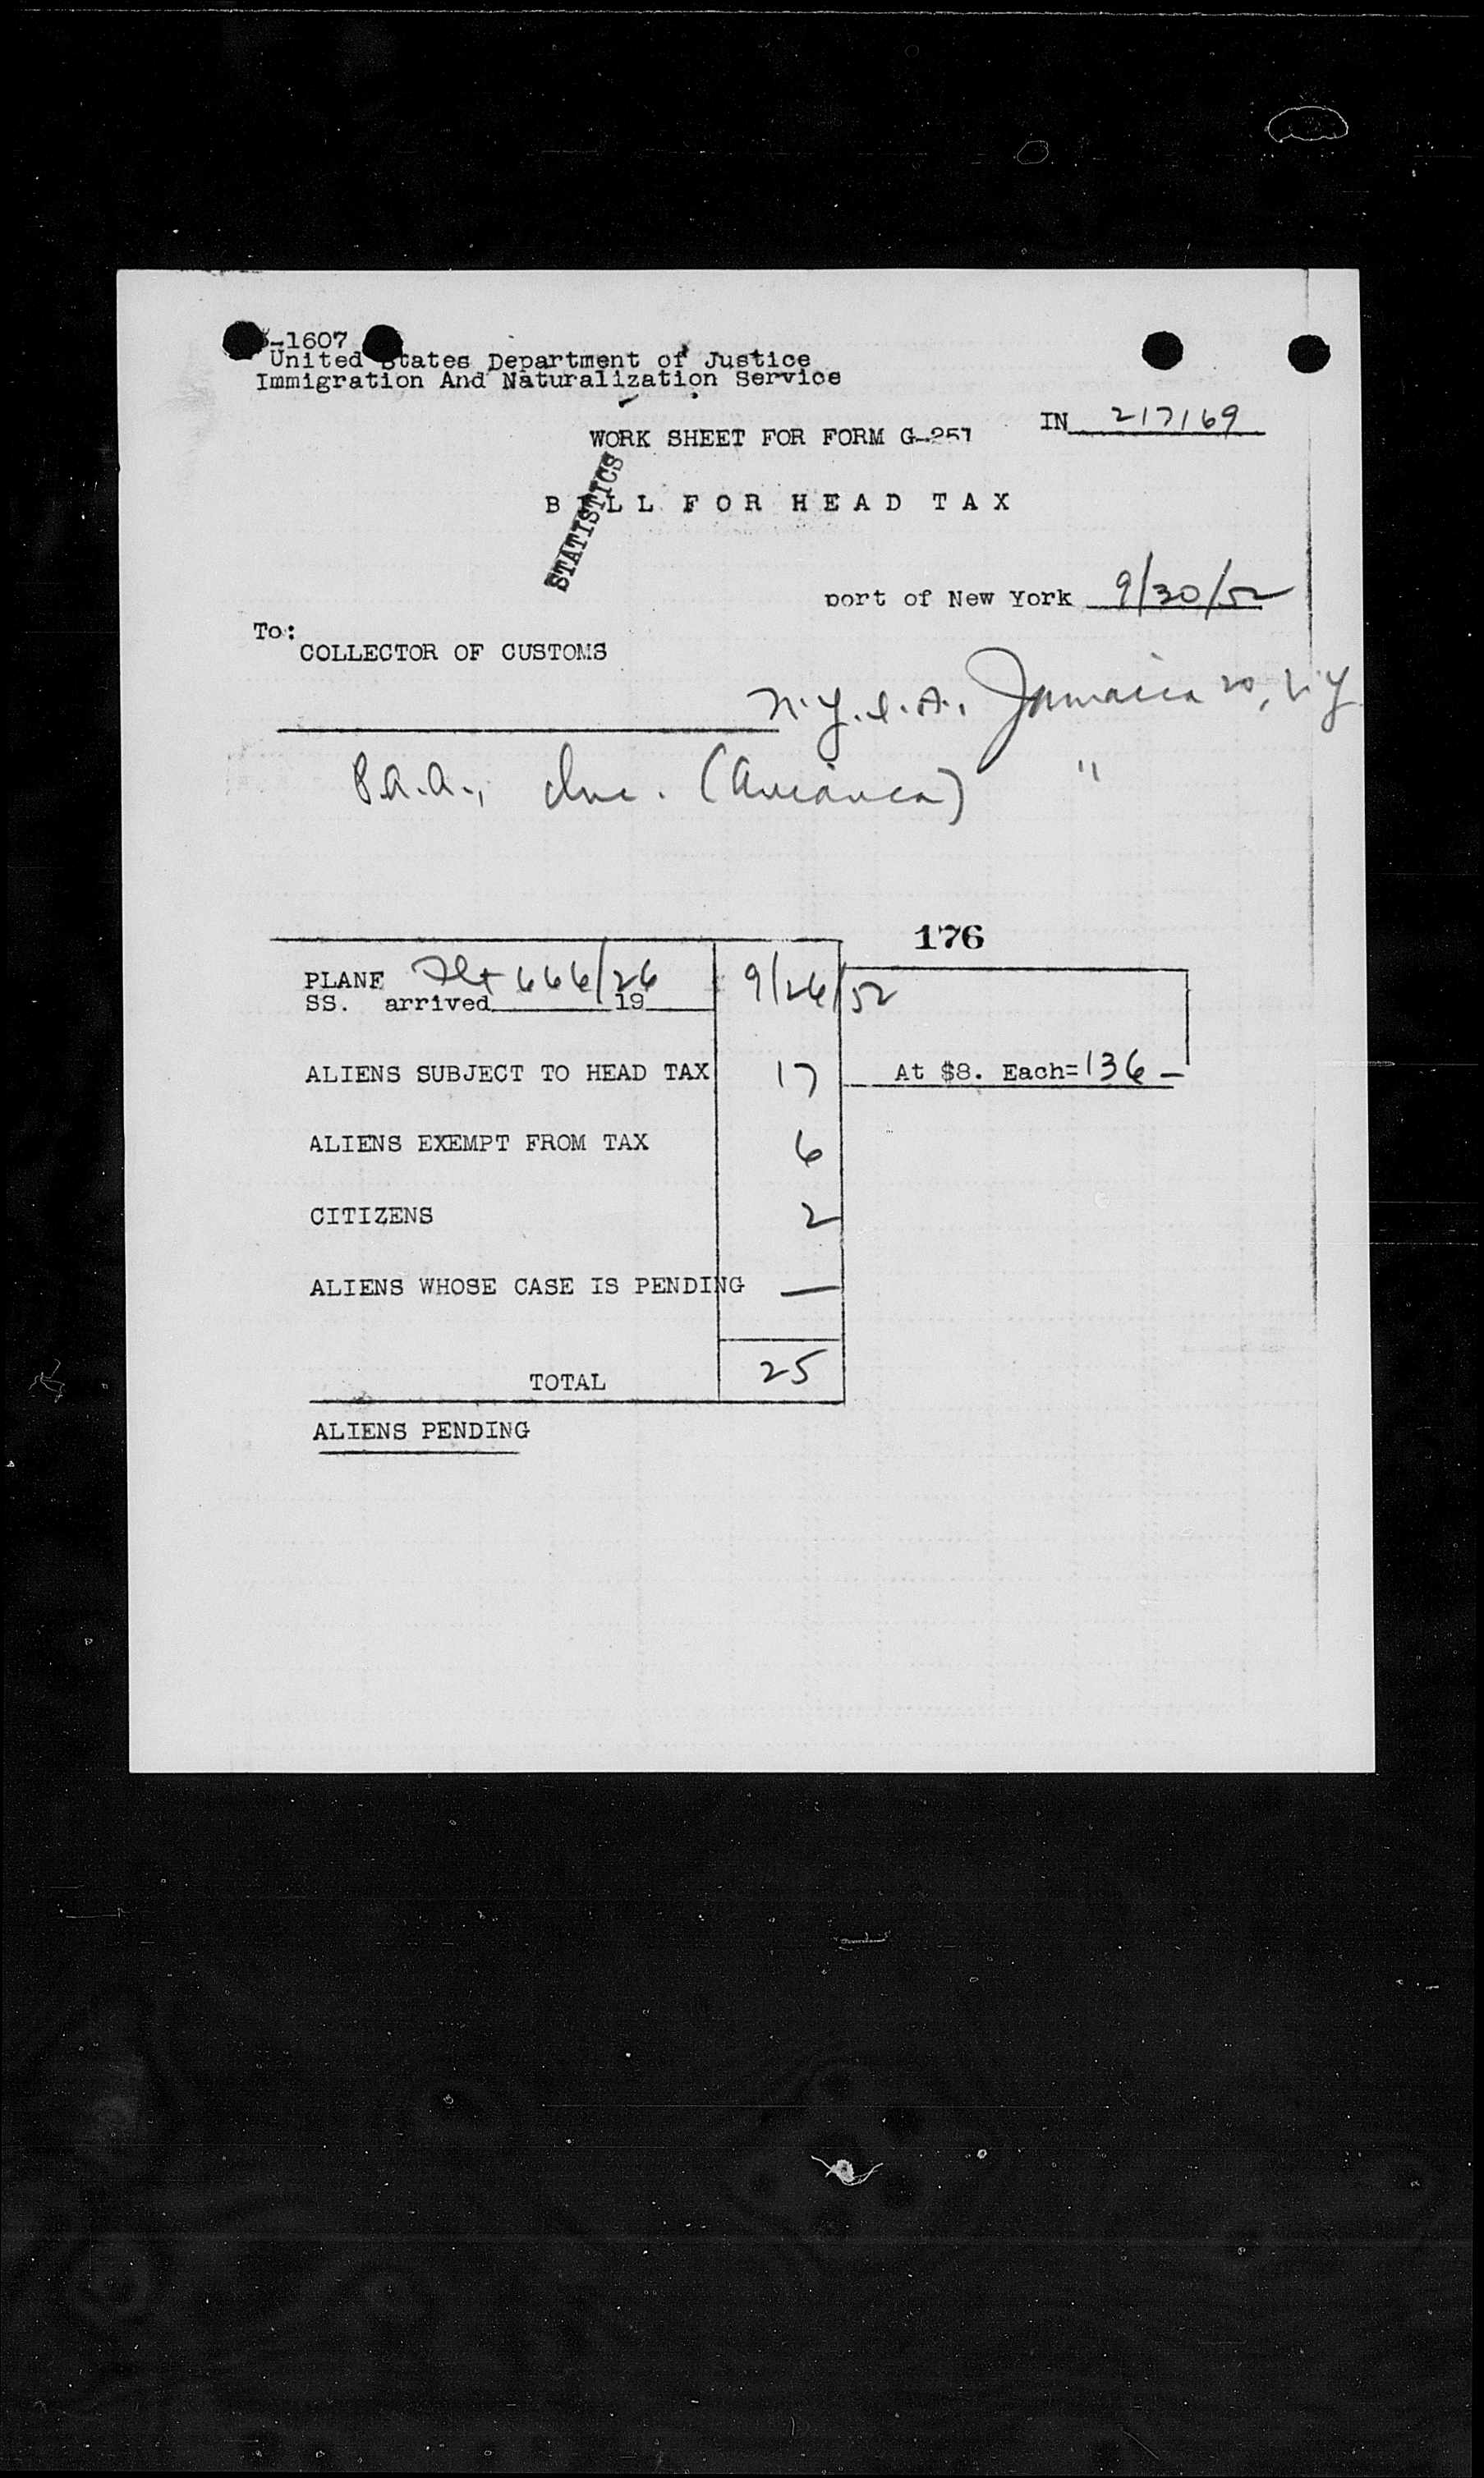 -1607
United States Department of Justice
Immigration And Naturalization Service
IN 217169
WORK SHEET FOR FORM G-257
STATISTICS
BILL FOR HEAD TAX
port of New York 9/30/52
To:
COLLECTOR OF CUSTOMS
N.Y.I.A., Jamaica 20, N.Y
P.A.A., Inc. (Avianca) "
176
PLANE Flt 666/26 9/26/52
SS. arrived 19
ALIENS SUBJECT TO HEAD TAX 17 At $8. Each=136-
ALIENS EXEMPT FROM TAX 6
CITIZENS 2
ALIENS WHOSE CASE IS PENDING —
TOTAL 25
ALIENS PENDING